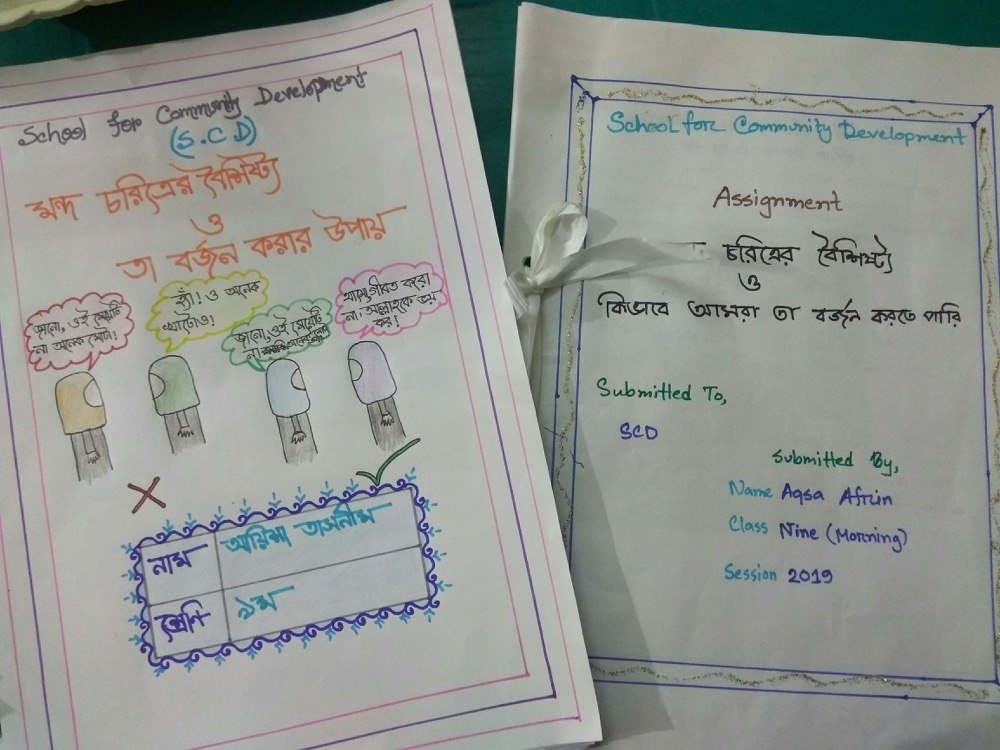 School for Community Development
(S.C.D)
মন্দ চরিত্রের বৈশিষ্ট্য
ও
তা বর্জন করার উপায়
জানো, ওই মেয়েটি
না অনেক মোটা!
হ্যাঁ! ও অনেক
খাটোও!
জানো, ওই মেয়েটি
না
গীবত করো
না। আল্লাহকে ভয়
কর!
নাম
আয়িশা তাসনীম
শ্রেণি
৯ম
School for Community Development
Assignment
চরিত্রের বৈশিষ্ট্য
ও
কিভাবে আমরা তা বর্জন করতে পারি
Submitted To,
SCD
Submitted By,
Name Aqsa Afrin
Class Nine (Morning)
Session 2019